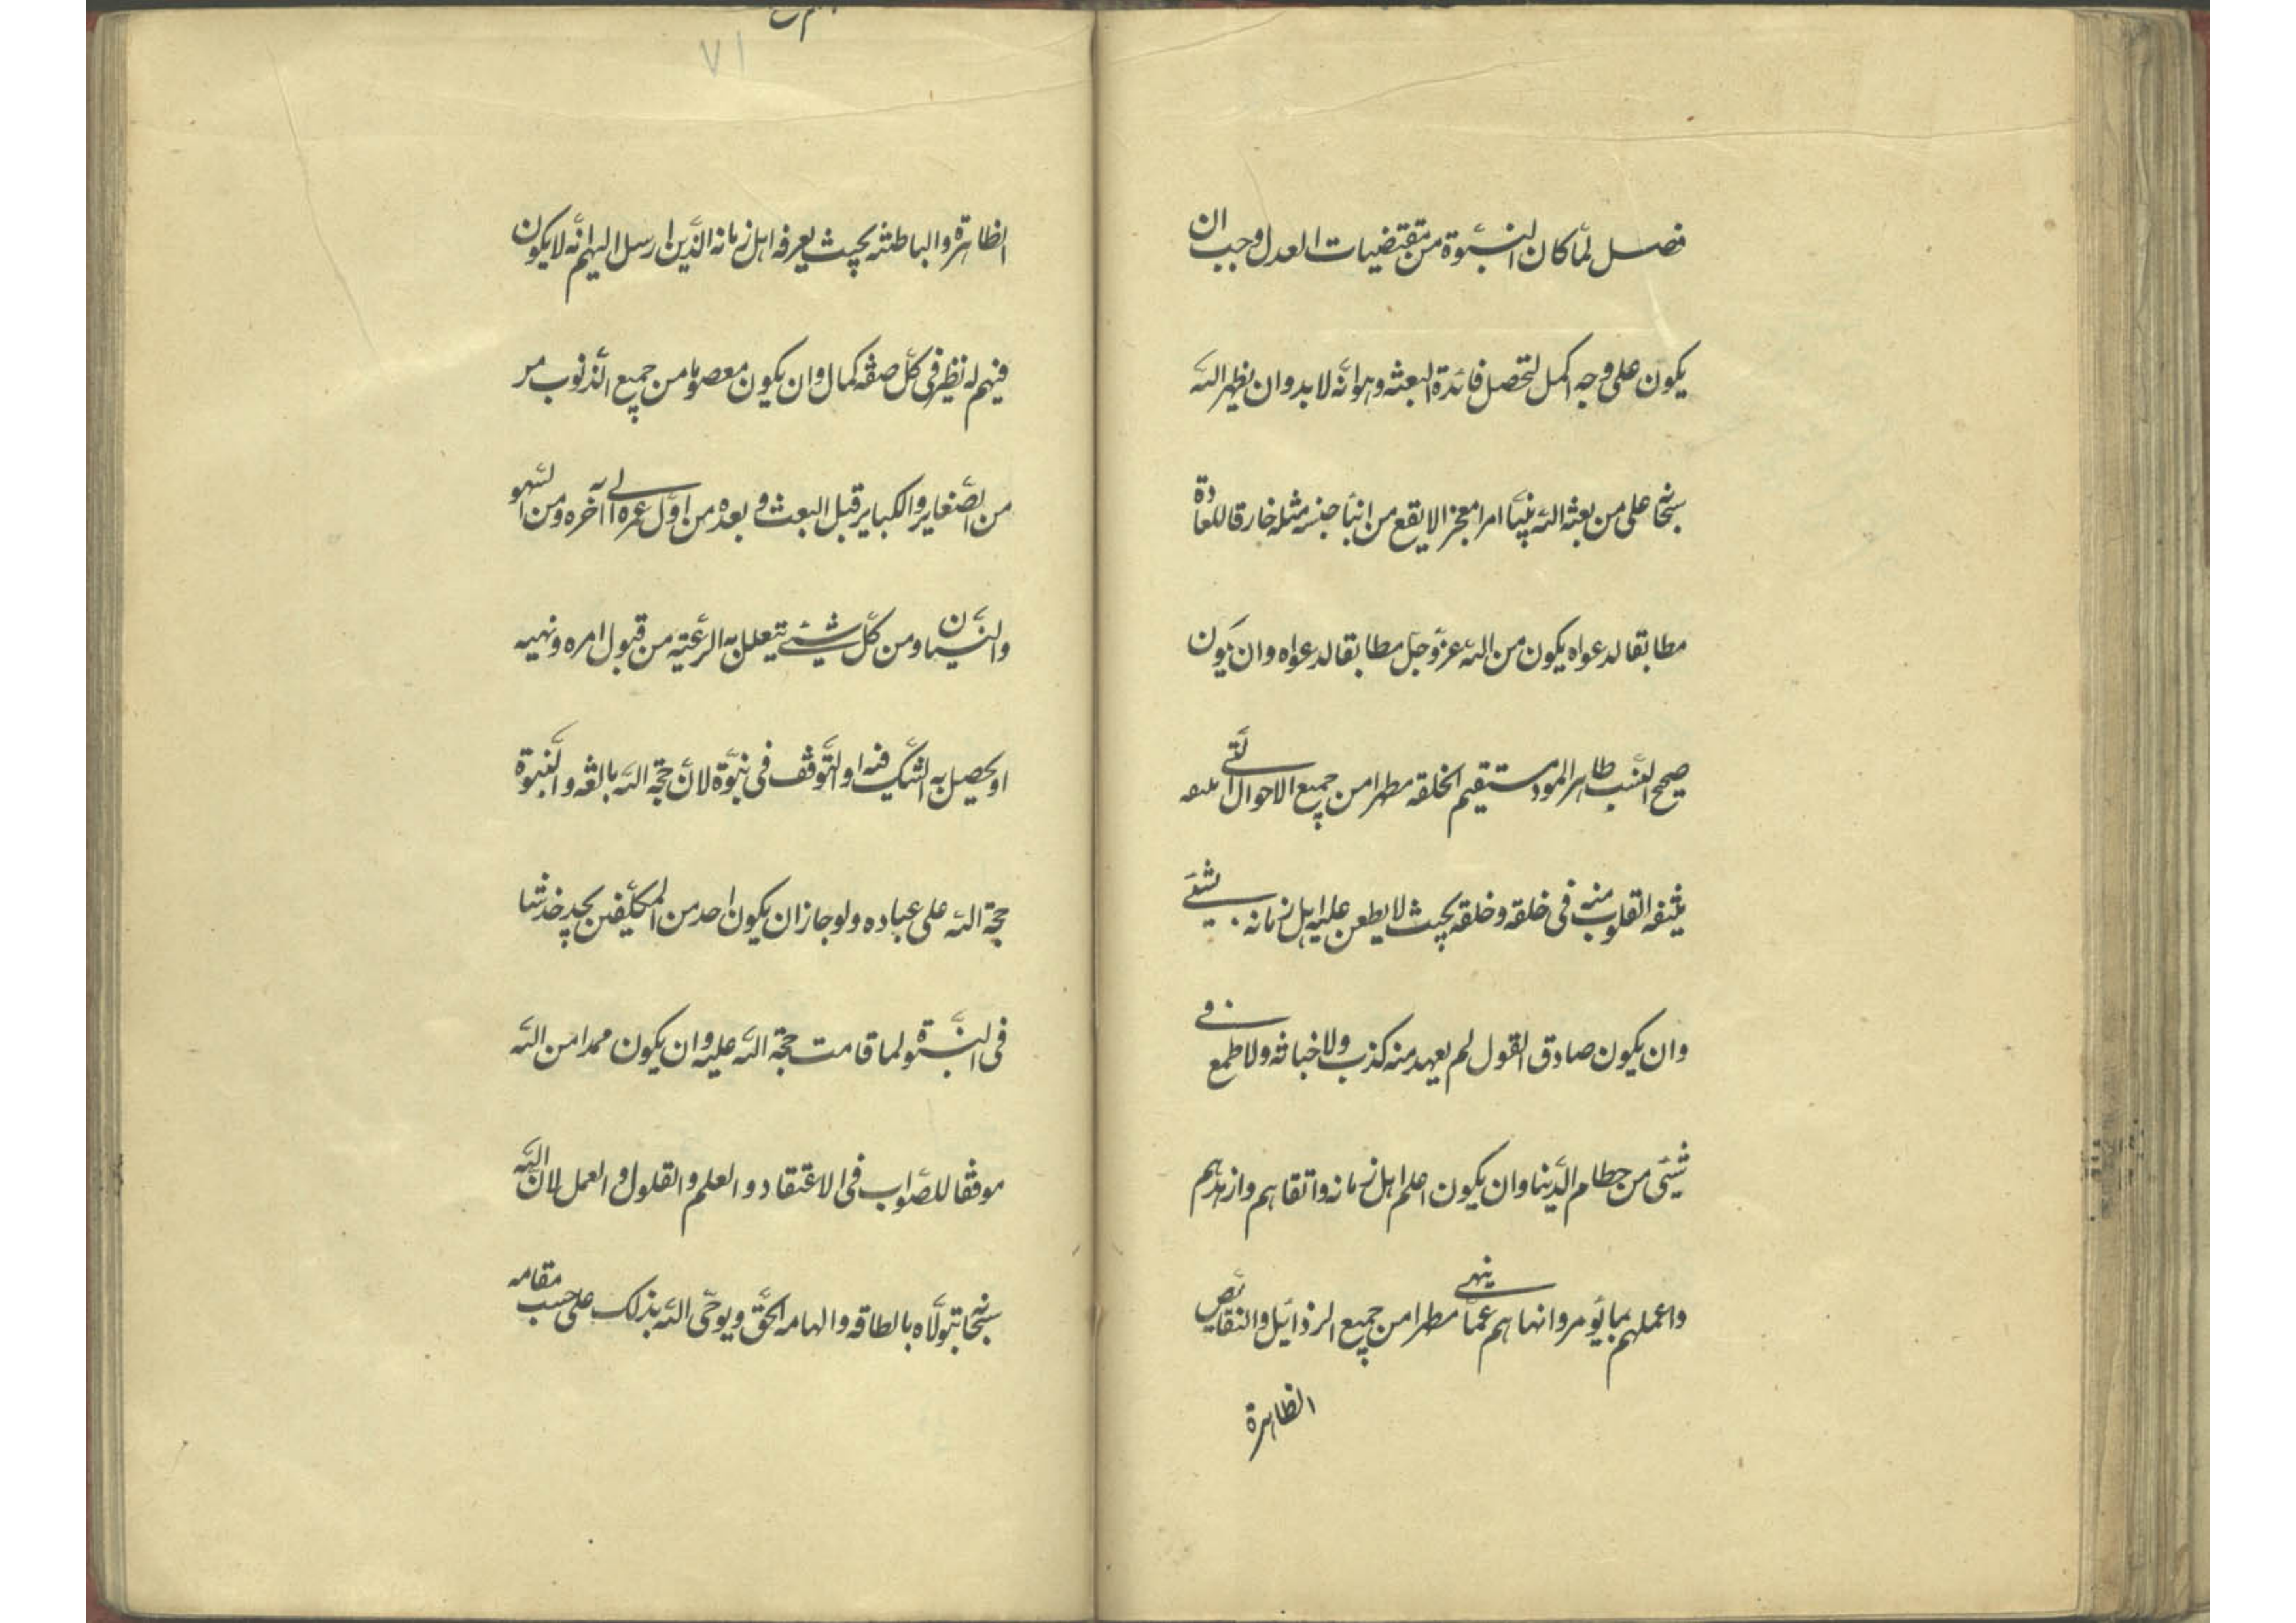 فصل لمّا كان النبّوة من مقتضيات العدل وجب ان
يكون على وجه اكمل لتحصل فائدة البعثه وهو انّه لا بد وان يظهر الله
سبحانه على من بعثه الله نبيّاً امرا معجزا لا يقع من ابناً جنسه مثله خارقا للعادة
مطابقا لدعواه يكون من الله عزّ وجلّ مطابقا لدعواه وان يكون
صحيح النّسب طاهر المولد مستقيم الخلقه مطهرا من جميع الاحوال الّتى
القلوب منه فى خلقه وخلقه بحيث لا يطعن عليه اهل زمانه بشيئ
وان يكون صادق القول لم يعهد منه كذب ولا خباثه ولا طمع فى
شيئى من حطام الدّينا وان يكون اعلم اهل زمانه واتقاهم وازهدهم
واعملهم بما يؤمر وانهاهم عمّا ينهى مطهرا من جميع الرذائيل والنقائص
الظاهرة
٧١
الظاهرة والباطنه بحيث يعرفه اهل زمانه الّذين ارسل اليهم انّه لا يكون
فيهم له نظير فى كلّ صفه كمال وان يكون معصوما من جميع الذّنوب
من الصّغاير والكباير قبل البعث وبعده من اوّل عمره الى آخره ومن السّهو
والنّسيان ومن كلّ شيئ يتعلل به الرعّيته من قبول امره ونهيه
او يحصل به الشّك فيه او التّوقف فى نبوّة لانّ حجّة الله بالغه والنّبوة
حجّة الله على عباده ولو جاز ان يكون احد من المكلّفين يجد خدشا
فى النّبوة لما قامت حجّة الله عليه وان يكون من الله
موفقا للصّواب فى الاعتقاد والعلم والقلول والعمل لانّ الله
سبحانه يتولّاه بالطاقه والهامه الحّق ويوحّى الله بذلك على حسب مقامه